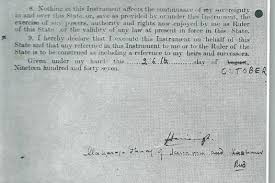 8. Nothing in this Instrument affects the continuance of my sovereignty
in and over this State, or, save as provided by or under this Instrument, the
exercise of any powers, authority and rights now enjoyed by me as Ruler
of this State or the validity of any law at present in force in this State.
9. I hereby declare that I execute this Instrument on behalf of this
State and that any reference in this Instrument to me or to the Ruler of the
State is to be construed as including a reference to my heirs and successors.
Given under my hand this 26th day of August,
OCTOBER
Nineteen hundred and forty seven.
Hari Singh
Maharaja Dhiraj of Jammu and Kashmir